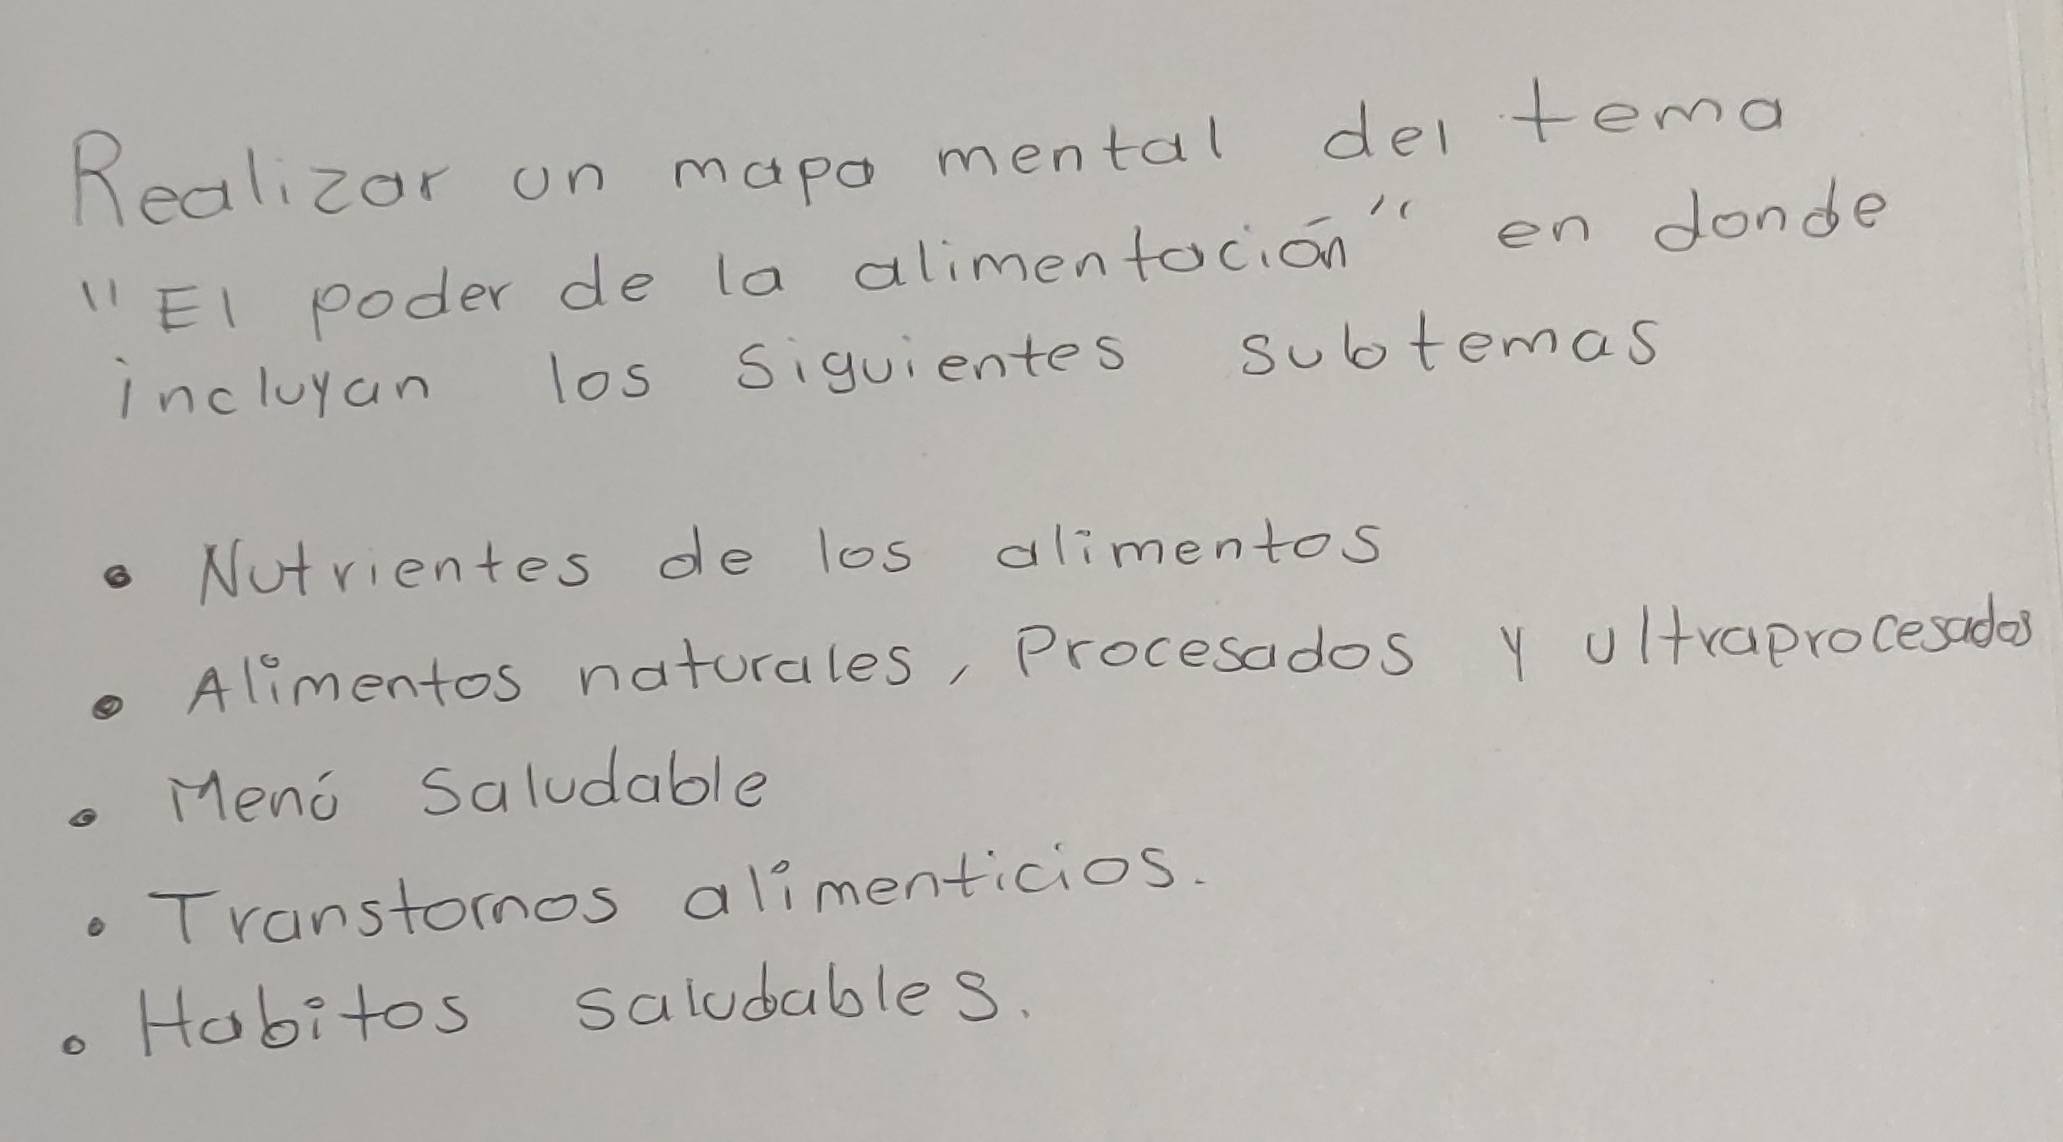 Realizar un mapa mental del tema
"El poder de la alimentación" en donde
incluyan los siguientes subtemas
• Nutrientes de los alimentos
• Alimentos naturales, Procesados y ultraprocesados
• Menú Saludable
• Transtornos alimenticios.
• Habitos saludables.